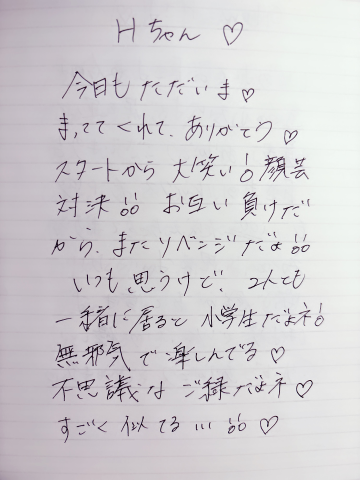 Hちゃん ♡
今日も ただいま♡
まっててくれて、ありがとう♡
スタートから 大笑い！顔芸
対決!! お互い 負けだ
から、またリベンジだよ!!
いつも 思うけど、2人とも
一緒に居ると 小学生だよネ！
無邪気で楽しんでる♡
不思議な ご縁だよネ♡
すごく 似てる…!! ♡